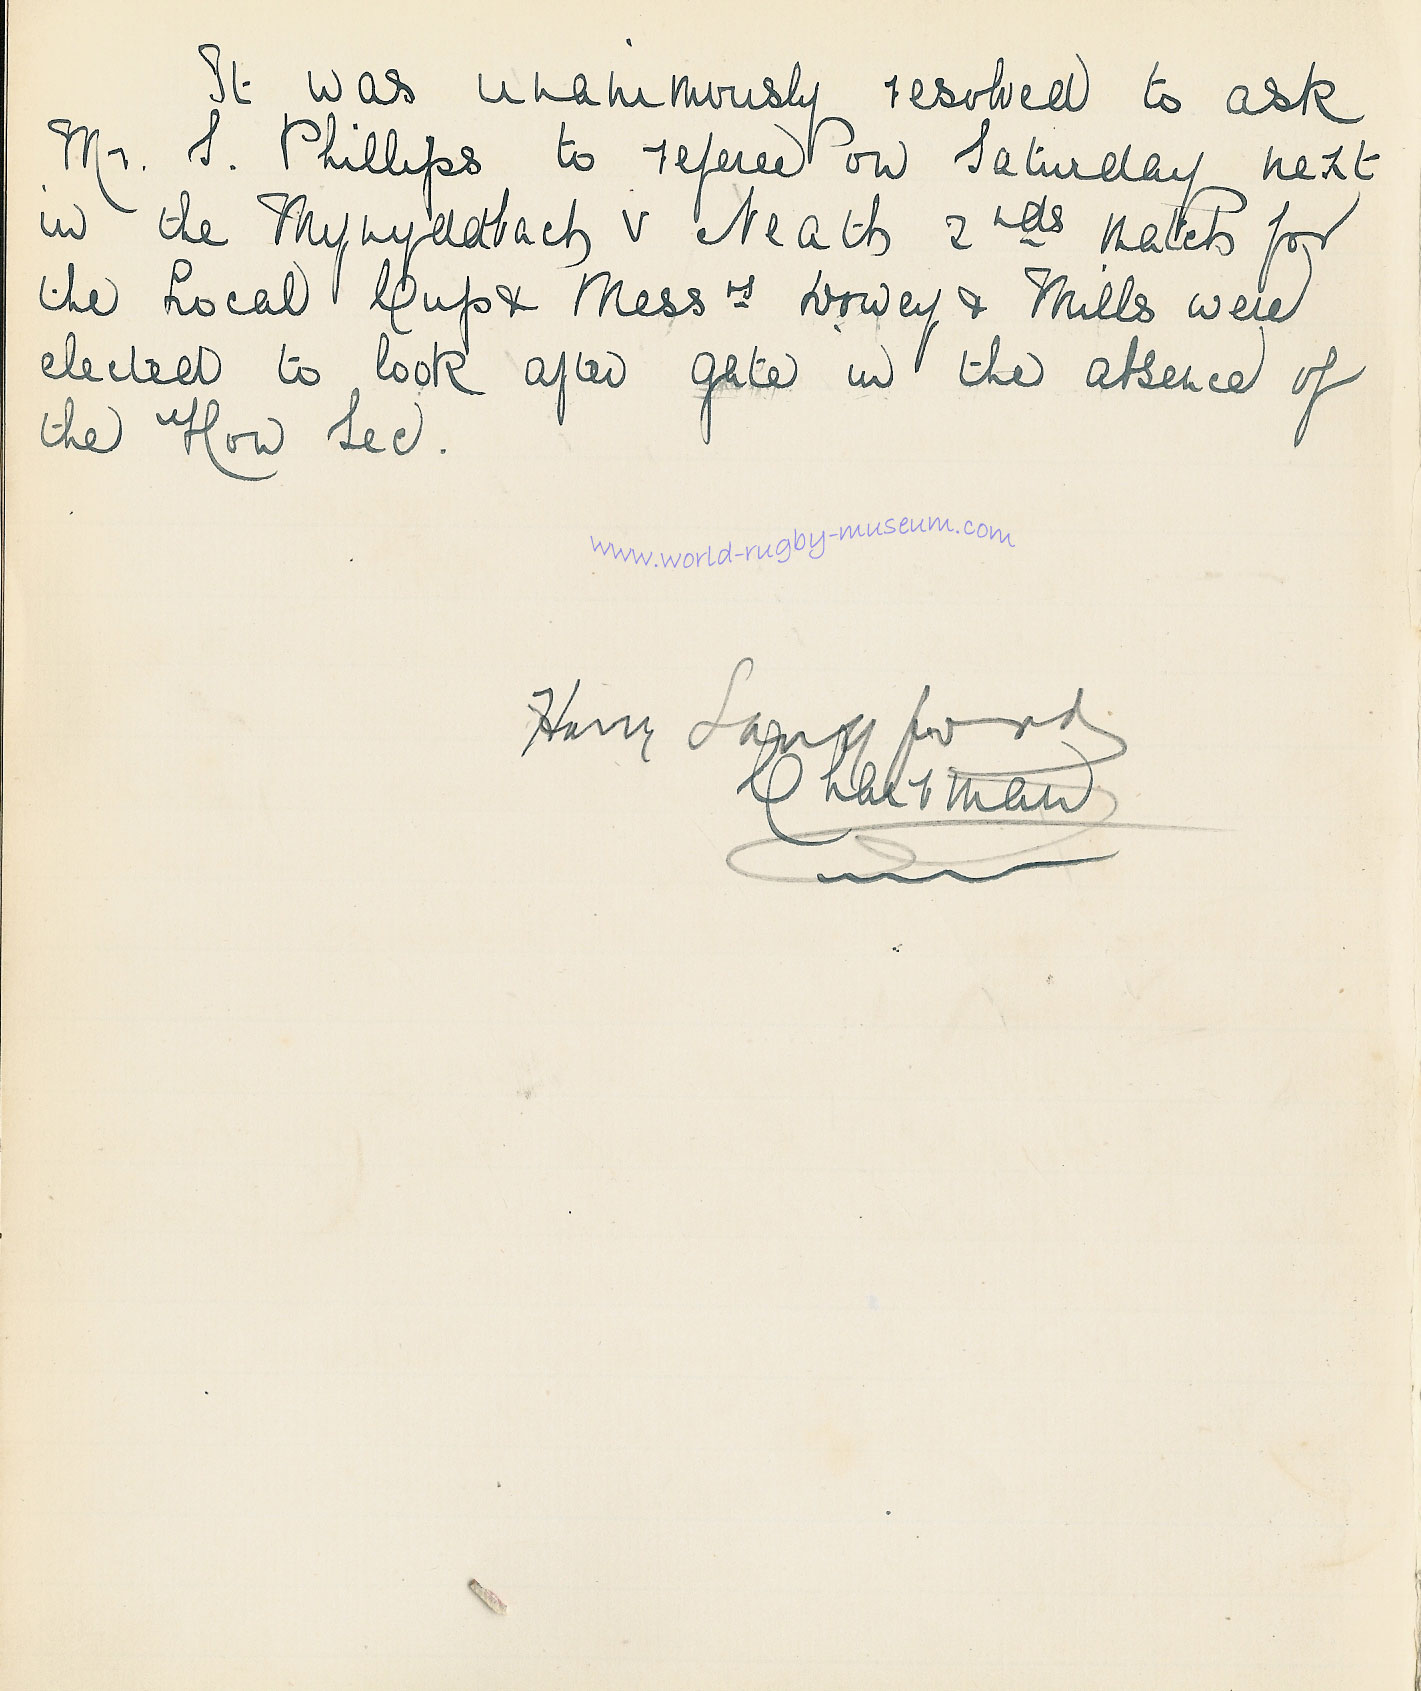 It was unanimously resolved to ask
Mr. S. Phillips to referee on Saturday next
in the Mynyddbach v Neath 2nds match for
the Local Cup & Messrs & Mills were
elected to look after gate in the absence of
the Hon Sec.
www.world-rugby-museum.com
Harry Langford
Chairman